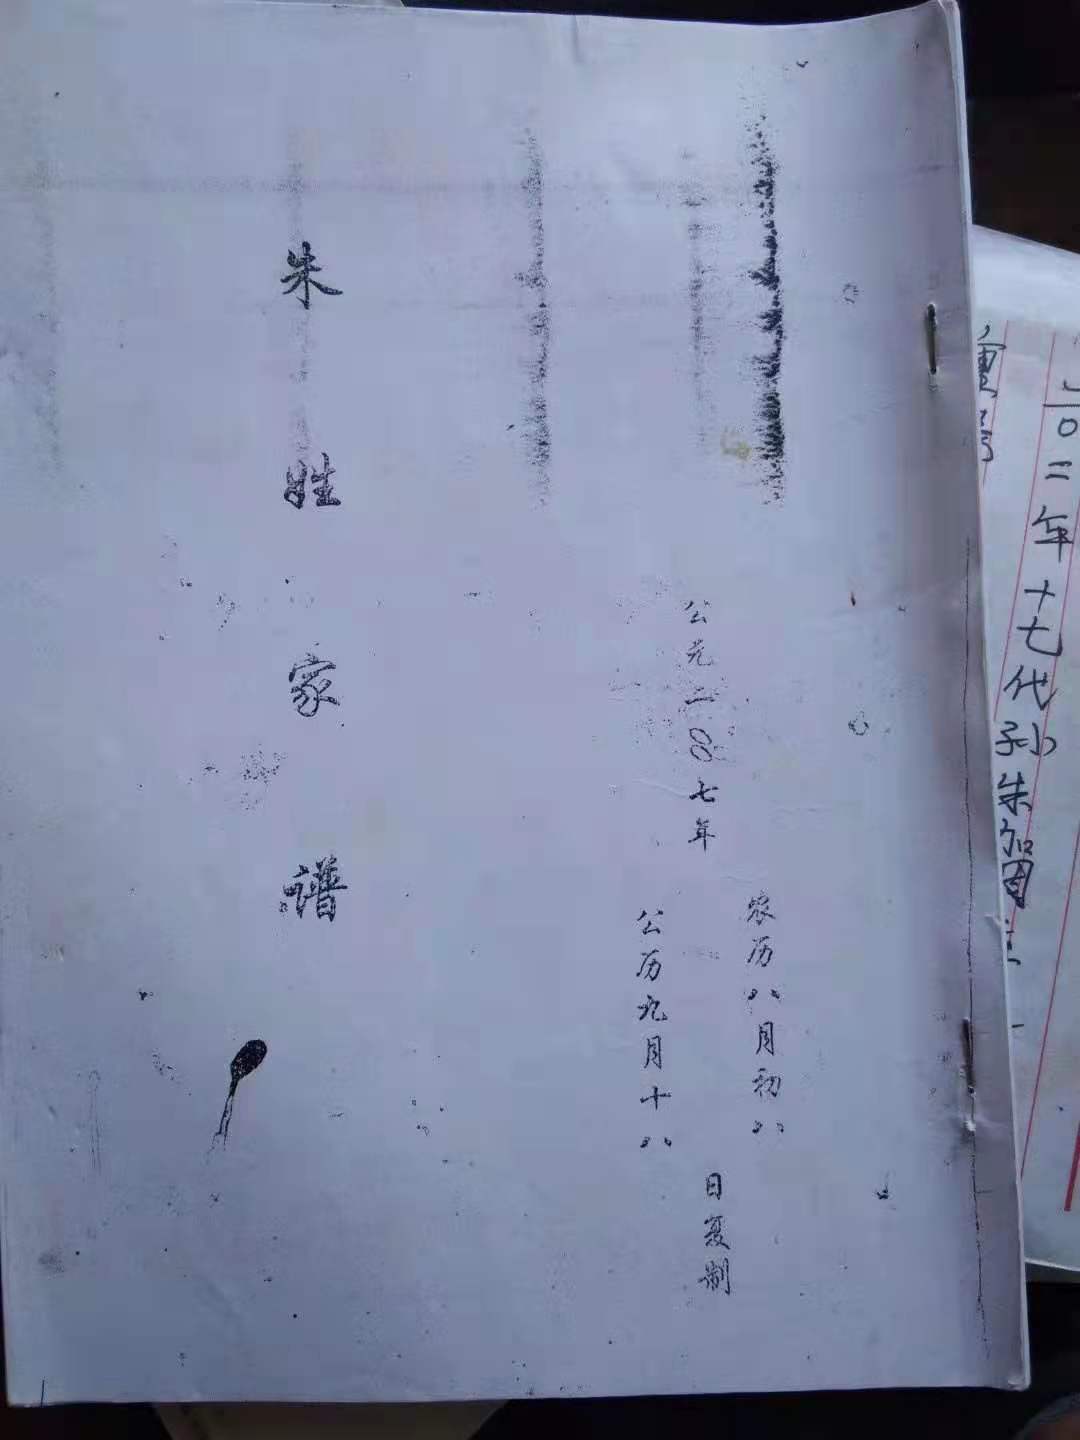 二〇二年十七代孙朱加国
农历八月初八
公元二〇〇七年
日复制
公历九月十八
朱姓家谱